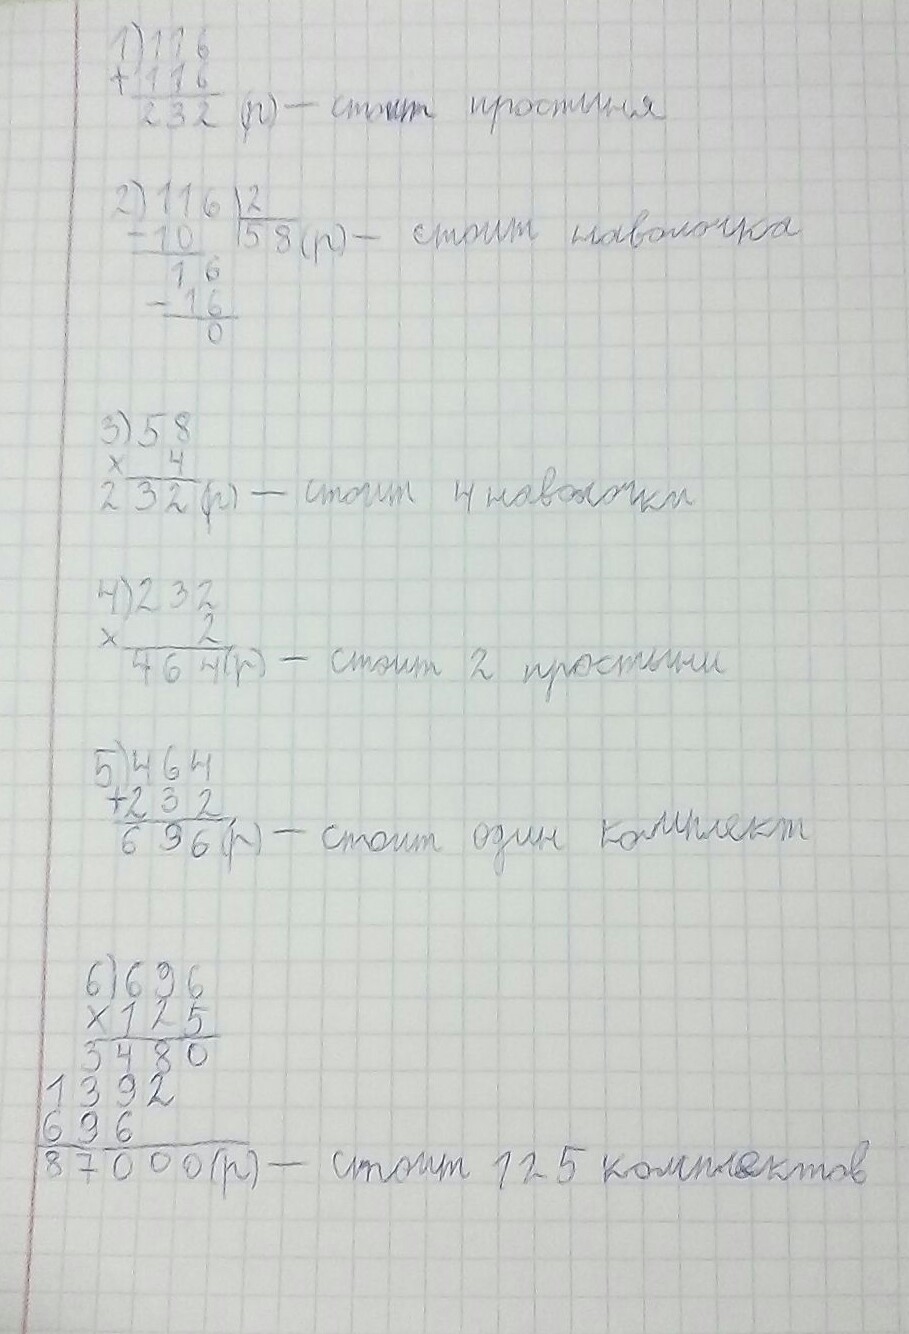 1) 116
+ 116
232 (р) — стоит простыня
2) 116 2
- 10 58 (р) — стоит наволочка
16
- 16
0
3) 58
× 4
232 (р) — стоит 4 наволочки
4) 232
× 2
464 (р) — стоит 2 простыни
5) 464
+ 232
696 (р) — стоит один комплект
6) 696
× 125
3480
1392
696
87000 (р) — стоит 125 комплектов